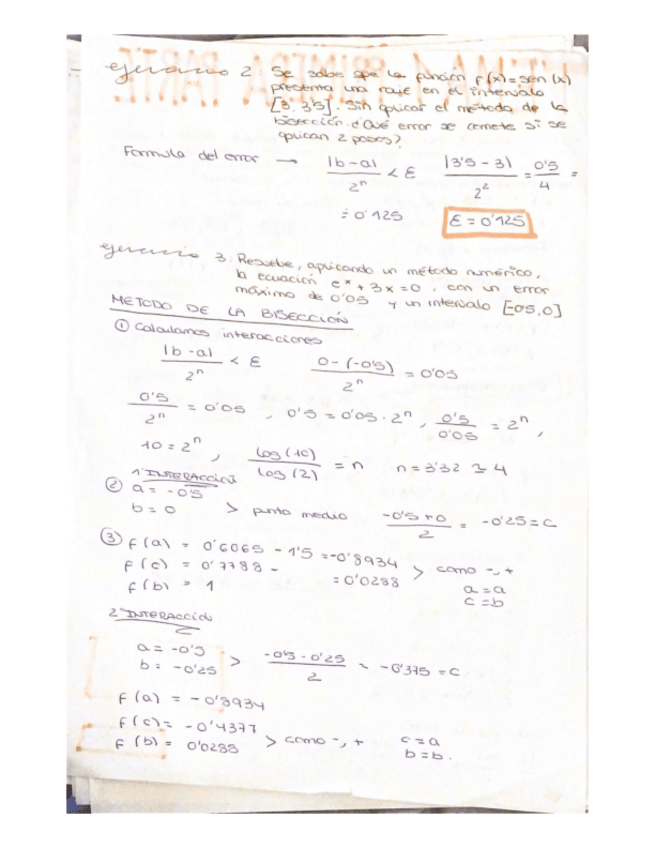 TEMA 4 PRIMERA PARTE
ejercicio 2: Se sabe que la función f(x)=sen(x)
presenta una raíz en el intervalo
[3, 3'5]. Sin aplicar el método de la
bisección. ¿Qué error se comete si se
aplican 2 pasos?
Formula del error → |b-a| / 2^n < ε   |3'5-3| / 2^2 = 0'5 / 4 =
= 0'125   ε = 0'125
ejercicio 3: Resuelve, aplicando un método numérico,
la ecuación e^x + 3x = 0, con un error
máximo de 0'05 y un intervalo [-0'5, 0]
METODO DE LA BISECCIÓN
① Calculamos interacciones
|b-a| / 2^n < ε   0-(-0'5) / 2^n = 0'05
0'5 / 2^n = 0'05, 0'5 = 0'05 · 2^n, 0'5 / 0'05 = 2^n,
10 = 2^n, log(10) / log(2) = n   n = 3'32 ≃ 4
1ª INTERACCIÓN
② a = -0'5
b = 0 > punto medio   -0'5+0 / 2 = -0'25 = c
③ f(a) = 0'6065 - 1'5 = -0'8934
f(c) = 0'7788 - = 0'0288 > como -, +
f(b) = 1   a = a
c = b
2ª INTERACCIÓN
a = -0'5
b = -0'25 > -0'5 - 0'25 / 2 = -0'375 = c
f(a) = -0'8934
f(c) = -0'4377
f(b) = 0'0288 > como -, +   c = a
b = b.